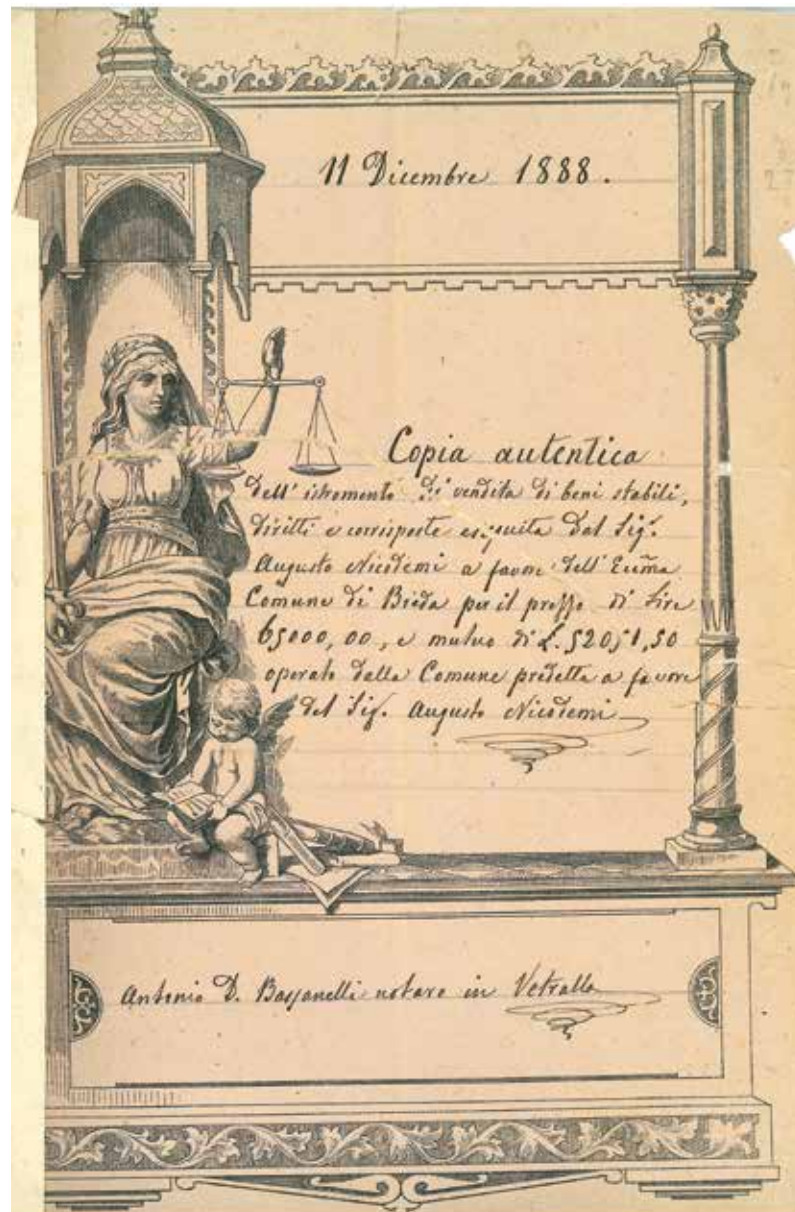 11 Dicembre 1888.
Copia autentica
dell' istromento di vendita di beni stabili,
diritti e corrisposte eseguita dal Sig.
Augusto Nicodemi a favore dell' Eccma
Comune di Bieda per il prezzo di Lire
65000,00, e mutuo di L. 52051,50
operato dalla Comune predetta a favore
del Sig. Augusto Nicodemi
Antonio D. Bassanelli notaro in Vetralla